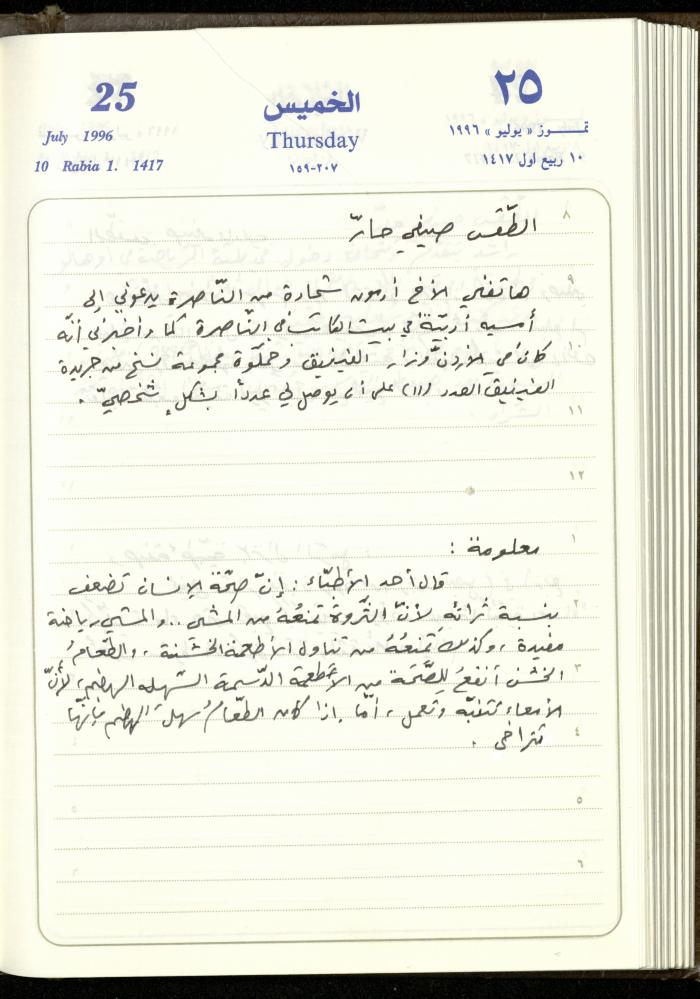 25
الخميس
٢٥
July 1996
Thursday
تمـــوز « يوليو » ١٩٩٦
10 Rabia 1. 1417
٢٠٧-١٥٩
١٠ ربيع اول ١٤١٧
٨
الطّقس صيفي حارّ
٩
هاتفني الأخ أرمون شحادة من النّاصرة يدعوني إلى
أمسيه أدبيّة في بيت الكاتب في النّاصرة كما وأخبرني أنّه
١٠
كان في الأردنّ وزار الفينيق وحمّلوه مجموعة نسخ من جريدة
الفينيق العدد (١١) على أن يوصل لي عدداً بشكلٍ شخصيّ .
١١
١٢
١
معلومة :
قال أحد الأطبّاء : إنّ صحّة الإنسان تضعف
٢
بنسبة ثرائه لأنّ الثّروة تمنعُهُ من المشي .. والمشي رياضة
مفيدة ، وكذلك تمنعُهُ من تناول الأطعمة الخشنة ، والطّعامُ
٣
الخشن أنفعُ للصّحّة من الأطعمة الدّسمة السّهله الهضم ، لأنّ
الأمعاء تتنبّه وتعمل ، أمّا إذا كان الطّعامُ سهلَ الهضم فإنّها
٤
تتراخى .
٥
٦